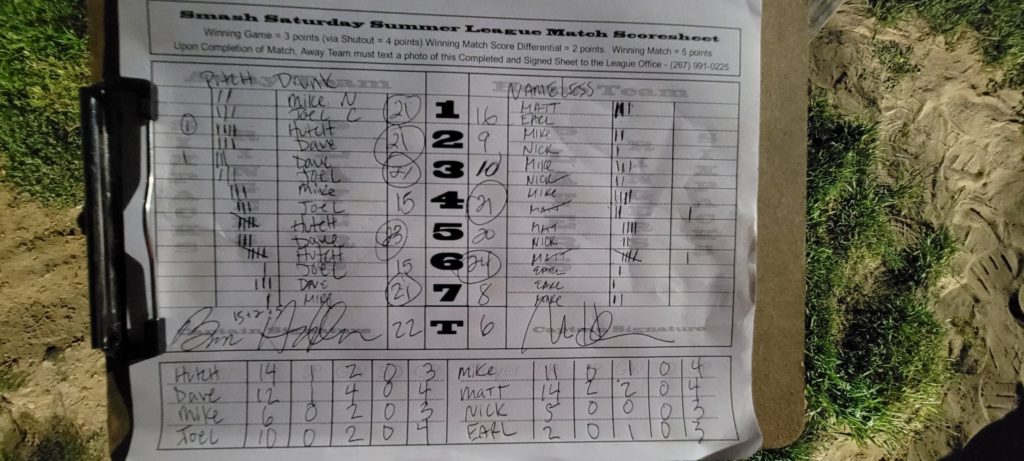 Smash Saturday Summer League Match Scoresheet
Winning Game = 3 points (via Shutout = 4 points) Winning Match Score Differential = 2 points. Winning Match = 5 points
Upon Completion of Match, Away Team must text a photo of this Completed and Signed Sheet to the League Office - (267) 991-0225.
PITCH DRUNK NAMELESS Team
Mike N 21 1 16 MATT
Joel C EARL
1 Hutch 21 2 9 MIKE
Dave NICK
1 Dave 21 3 10 MIKE
Joel NICK
Mike 15 4 21 MIKE
Joel MATT 1
Hutch 23 5 20 MATT
Dave NICK
Hutch 15 6 24 MATT 1
Joel EARL
DAVE 21 7 8 EARL
Mike MIKE
15+2+5 22 T 6 Captain Signature
Hutch 14 1 2 0 3 MIKE 11 0 0 0 4
Dave 12 4 0 4 MATT 14 2 2 0 4
Mike 6 0 2 0 3 NICK 0 0 0 3
Joel 10 0 2 0 4 EARL 2 0 1 0 3